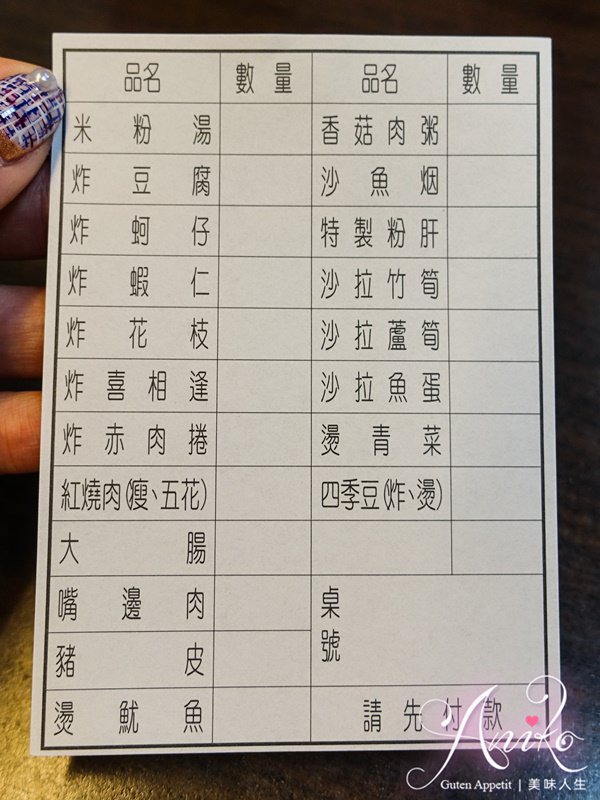 品名 數量 品名 數量
米粉湯 香菇肉粥
炸豆腐 沙魚烟
炸蚵仔 特製粉肝
炸蝦仁 沙拉竹筍
炸花枝 沙拉蘆筍
炸喜相逢 沙拉魚蛋
炸赤肉捲 燙青菜
紅燒肉(瘦、五花) 四季豆(炸、燙)
大腸
嘴邊肉 桌號
豬皮
燙魷魚 請先付款
Aniko
Guten Appetit | 美味人生